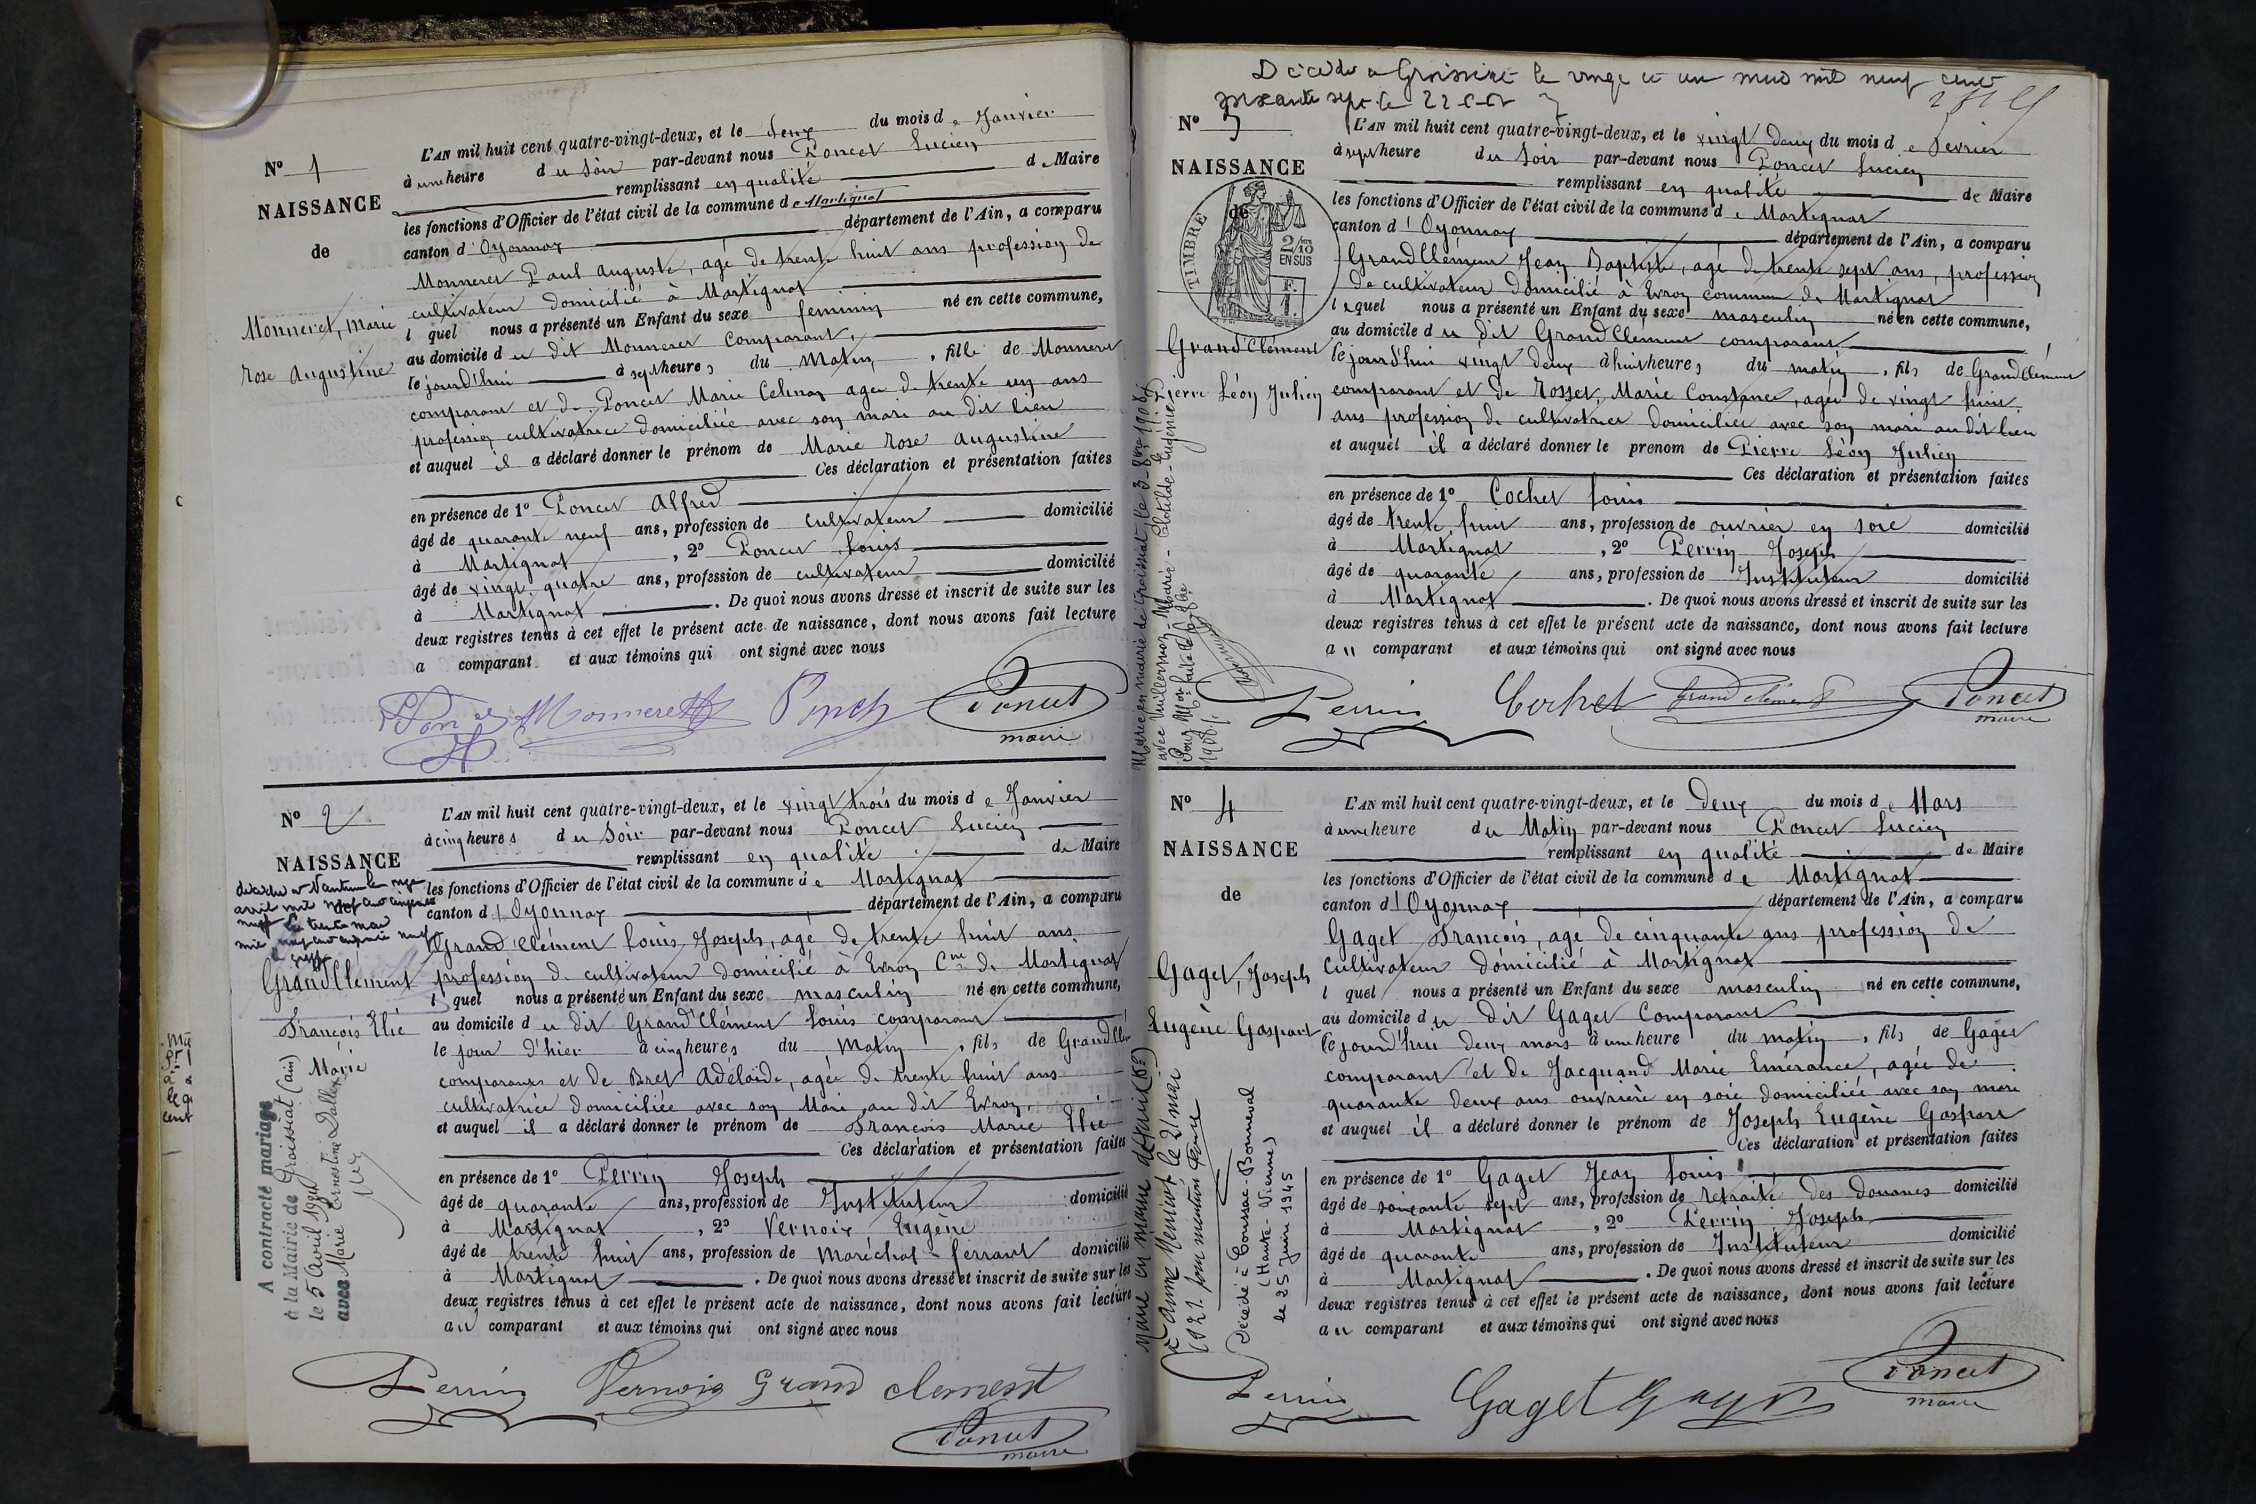 N° 1
NAISSANCE
de
Monneret, Marie
Rose Augustine
L'AN mil huit cent quatre-vingt-deux, et le deux du mois de Janvier
à une heure du Soir par-devant nous Poncet Lucien
remplissant en qualité de Maire
les fonctions d'Officier de l'état civil de la commune de Martignat
canton d'Oyonnax département de l'Ain, a comparu
Monneret Paul Auguste, agé de trente huit ans profession de
cultivateur domicilié à Martignat
l quel nous a présenté un Enfant du sexe feminin né en cette commune,
au domicile du dit Monneret comparant,
le jourd'hui à sept heures du Matin, fille de Monneret
comparant et de Poncet Marie Celina agée de trente un ans
profession cultivatrice domiciliée avec son mari au dit lieu
et auquel il a déclaré donner le prénom de Marie Rose Augustine
Ces déclaration et présentation faites
en présence de 1° Poncet Alfred
âgé de quarante neuf ans, profession de cultivateur domicilié
à Martignat, 2° Poncet Louis
âgé de vingt quatre ans, profession de cultivateur domicilié
à Martignat. De quoi nous avons dressé et inscrit de suite sur les
deux registres tenus à cet effet le présent acte de naissance, dont nous avons fait lecture
a comparant et aux témoins qui ont signé avec nous
Monneret Poncet
maire
N° 2
NAISSANCE
GrandClément
François Elie
Marie
A contracté mariage
à la Mairie de Groissiat (ain)
le 5 Avril
avec Marie Ernestine
L'AN mil huit cent quatre-vingt-deux, et le vingt trois du mois de Janvier
à cinq heures du Soir par-devant nous Poncet Lucien
remplissant en qualité de Maire
les fonctions d'Officier de l'état civil de la commune de Martignat
canton d'Oyonnax département de l'Ain, a comparu
Grand'Clément Louis Joseph, agé de trente huit ans
profession de cultivateur domicilié à Evron Cne de Martignat
l quel nous a présenté un Enfant du sexe masculin né en cette commune,
au domicile du dit Grand'Clément Louis comparant
le jour d'hier à cinq heures du Matin, fils de GrandClé
comparant et de Bret Adélaïde, agée de trente huit ans
cultivatrice domiciliée avec son Mari au dit Evron,
et auquel il a déclaré donner le prénom de François Marie Elie
Ces déclaration et présentation faites
en présence de 1° Perrin Joseph
âgé de quarante ans, profession de Instituteur domicilié
à Martignat, 2° Vernoix Eugène
âgé de trente huit ans, profession de Maréchal-ferrant domicilié
à Martignat. De quoi nous avons dressé et inscrit de suite sur les
deux registres tenus à cet effet le présent acte de naissance, dont nous avons fait lecture
au comparant et aux témoins qui ont signé avec nous
Perrin Vernoix Grand clement
Poncet
maire
Décédé à Groissiat le vingt et un mars mil neuf cent
soixante sept le
N° 3
NAISSANCE
de
TIMBRE
2/10
EN SUS
F.
1.
Grand'Clément
Pierre Léon Julien
Marié en mairie de Groissiat, le 3 9bre 1908,
avec Vuillermoz Marie-Clotilde-Eugénie
L'AN mil huit cent quatre-vingt-deux, et le vingt deux du mois de Fevrier
à sept heure du Soir par-devant nous Poncet Lucien
remplissant en qualité de Maire
les fonctions d'Officier de l'état civil de la commune de Martignat
canton d'Oyonnax département de l'Ain, a comparu
GrandClément Jean Baptiste, agé de trente sept ans, profession
de cultivateur domicilié à Evron commune de Martignat
lequel nous a présenté un Enfant du sexe masculin né en cette commune,
au domicile du dit GrandClément comparant
le jourd'hui vingt deux à huit heures du matin, fils de GrandClément
comparant et de Rosset, Marie Constance, agée de vingt huit
ans profession de cultivatrice domiciliée avec son mari au dit lieu
et auquel il a déclaré donner le prenom de Pierre Léon Julien
Ces déclaration et présentation faites
en présence de 1° Cochet Louis
âgé de trente huit ans, profession de ouvrier en soie domicilié
à Martignat, 2° Perrin Joseph
âgé de quarante ans, profession de Instituteur domicilié
à Martignat. De quoi nous avons dressé et inscrit de suite sur les
deux registres tenus à cet effet le présent acte de naissance, dont nous avons fait lecture
au comparant et aux témoins qui ont signé avec nous
Perrin Cochet Grand clément Poncet
maire
N° 4
NAISSANCE
de
Gaget, Joseph
Eugène Gaspard
Décédé à Coussac-Bonneval
(Haute-Vienne)
le 25 Juin 1945
L'AN mil huit cent quatre-vingt-deux, et le Deux du mois de Mars
à une heure du Matin par-devant nous Poncet Lucien
remplissant en qualité de Maire
les fonctions d'Officier de l'état civil de la commune de Martignat
canton d'Oyonnax département de l'Ain, a comparu
Gaget François, agé de cinquante ans profession de
cultivateur domicilié à Martignat
l quel nous a présenté un Enfant du sexe masculin né en cette commune,
au domicile du Dit Gaget Comparant
le jourd'hui deux mars à une heure du matin, fils de Gaget
comparant et de Jacquand Marie Emérance, agée de
quarante deux ans ouvrière en soie domiciliée avec son mari
et auquel il a déclaré donner le prénom de Joseph Eugène Gaspard
Ces déclaration et présentation faites
en présence de 1° Gaget Jean Louis
âgé de soixante sept ans, profession de retraité des Douanes domicilié
à Martignat, 2° Perrin Joseph
âgé de quarante ans, profession de Instituteur domicilié
à Martignat. De quoi nous avons dressé et inscrit de suite sur les
deux registres tenus à cet effet le présent acte de naissance, dont nous avons fait lecture
au comparant et aux témoins qui ont signé avec nous
Perrin Gaget Poncet
maire